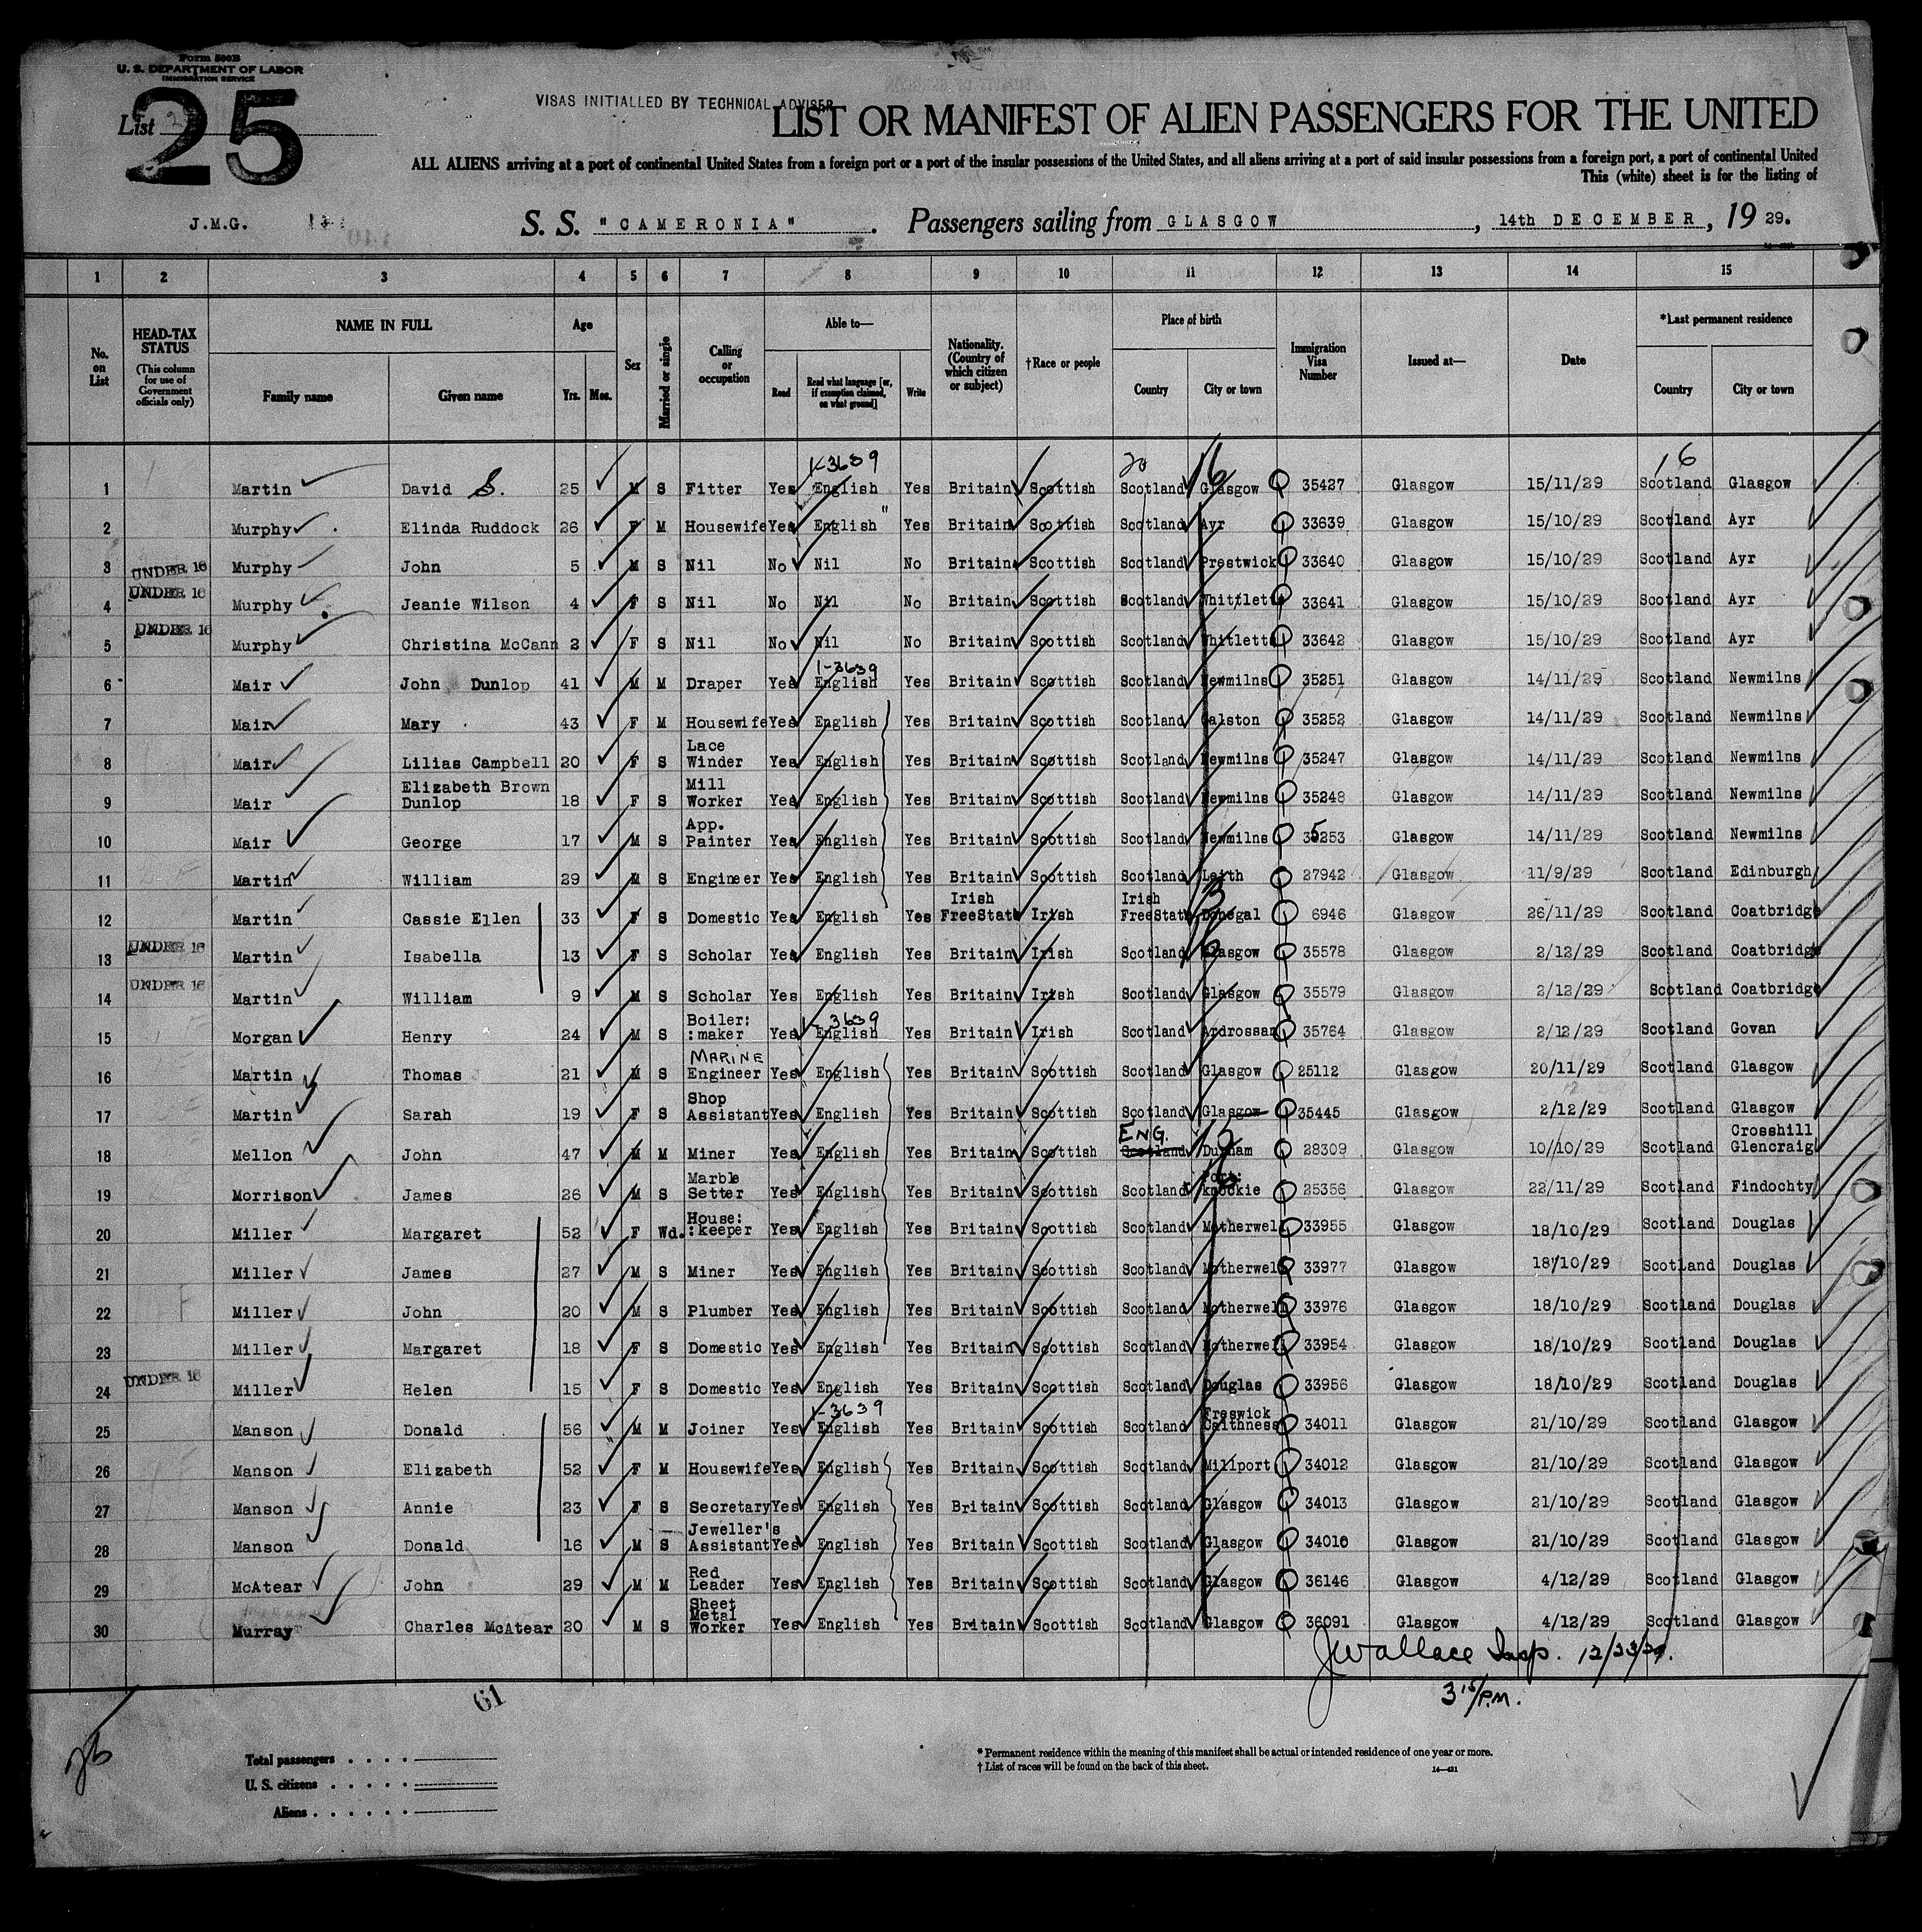 Form 500B
U. S. DEPARTMENT OF LABOR
IMMIGRATION SERVICE
List 25
VISAS INITIALLED BY TECHNICAL ADVISER
LIST OR MANIFEST OF ALIEN PASSENGERS FOR THE UNITED
ALL ALIENS arriving at a port of continental United States from a foreign port or a port of the insular possessions of the United States, and all aliens arriving at a port of said insular possessions from a foreign port, a port of continental United
This (white) sheet is for the listing of
J.M.G. S. S. "CAMERONIA". Passengers sailing from GLASGOW, 14th DECEMBER, 19 29.
1 2 3 4 5 6 7 8 9 10 11 12 13 14 15
No. on List HEAD-TAX STATUS (This column for use of Government officials only) NAME IN FULL Family name Given name Age Yrs. Mos. Sex Married or single Calling or occupation Able to— Read Read what language [or, if exemption claimed, on what ground] Write Nationality. (Country of which citizen or subject) †Race or people Place of birth Country City or town Immigration Visa Number Issued at— Date *Last permanent residence Country City or town
1-3639 20 16 16
1 Martin David S. 25 M S Fitter Yes English Yes Britain Scottish Scotland Glasgow 35427 Glasgow 15/11/29 Scotland Glasgow
2 Murphy Elinda Ruddock 26 F M Housewife Yes English " Yes Britain Scottish Scotland Ayr 33639 Glasgow 15/10/29 Scotland Ayr
3 UNDER 16 Murphy John 5 M S Nil No Nil No Britain Scottish Scotland Prestwick 33640 Glasgow 15/10/29 Scotland Ayr
4 UNDER 16 Murphy Jeanie Wilson 4 F S Nil No Nil No Britain Scottish Scotland Whittlett 33641 Glasgow 15/10/29 Scotland Ayr
5 UNDER 16 Murphy Christina McCann 2 F S Nil No Nil No Britain Scottish Scotland Whitlett 33642 Glasgow 15/10/29 Scotland Ayr
1-3639
6 Mair John Dunlop 41 M M Draper Yes English Yes Britain Scottish Scotland Newmilns 35251 Glasgow 14/11/29 Scotland Newmilns
7 Mair Mary 43 F M Housewife Yes English Yes Britain Scottish Scotland Galston 35252 Glasgow 14/11/29 Scotland Newmilns
8 Mair Lilias Campbell 20 F S Lace Winder Yes English Yes Britain Scottish Scotland Newmilns 35247 Glasgow 14/11/29 Scotland Newmilns
9 Mair Elizabeth Brown Dunlop 18 F S Mill Worker Yes English Yes Britain Scottish Scotland Newmilns 35248 Glasgow 14/11/29 Scotland Newmilns
10 Mair George 17 M S App. Painter Yes English Yes Britain Scottish Scotland Newmilns 35253 Glasgow 14/11/29 Scotland Newmilns
11 Martin William 29 M S Engineer Yes English Yes Britain Scottish Scotland Leith 27942 Glasgow 11/9/29 Scotland Edinburgh
12 Martin Cassie Ellen 33 F S Domestic Yes English Yes Irish FreeState Irish Irish FreeState Donegal 6946 Glasgow 26/11/29 Scotland Coatbridge
13 UNDER 16 Martin Isabella 13 F S Scholar Yes English Yes Britain Irish Scotland Glasgow 35578 Glasgow 2/12/29 Scotland Coatbridge
14 UNDER 16 Martin William 9 M S Scholar Yes English Yes Britain Irish Scotland Glasgow 35579 Glasgow 2/12/29 Scotland Coatbridge
1-3639
15 Morgan Henry 24 M S Boiler: :maker Yes English Yes Britain Irish Scotland Ardrossan 35764 Glasgow 2/12/29 Scotland Govan
16 Martin Thomas 21 M S MARINE Engineer Yes English Yes Britain Scottish Scotland Glasgow 25112 Glasgow 20/11/29 Scotland Glasgow
17 Martin Sarah 19 F S Shop Assistant Yes English Yes Britain Scottish Scotland Glasgow 35445 Glasgow 2/12/29 Scotland Glasgow
18 Mellon John 47 M M Miner Yes English Yes Britain Scottish ENG. Scotland Durham 28309 Glasgow 10/10/29 Scotland Crosshill Glencraig
19 Morrison James 26 M S Marble Setter Yes English Yes Britain Scottish Scotland Port: knockie 25356 Glasgow 22/11/29 Scotland Findochty
20 Miller Margaret 52 F Wd. House: :keeper Yes English Yes Britain Scottish Scotland Motherwell 33955 Glasgow 18/10/29 Scotland Douglas
21 Miller James 27 M S Miner Yes English Yes Britain Scottish Scotland Motherwell 33977 Glasgow 18/10/29 Scotland Douglas
22 Miller John 20 M S Plumber Yes English Yes Britain Scottish Scotland Motherwell 33976 Glasgow 18/10/29 Scotland Douglas
23 Miller Margaret 18 F S Domestic Yes English Yes Britain Scottish Scotland Motherwell 33954 Glasgow 18/10/29 Scotland Douglas
24 UNDER 16 Miller Helen 15 F S Domestic Yes English Yes Britain Scottish Scotland Douglas 33956 Glasgow 18/10/29 Scotland Douglas
1-3639
25 Manson Donald 56 M M Joiner Yes English Yes Britain Scottish Scotland Freswick Caithness 34011 Glasgow 21/10/29 Scotland Glasgow
26 Manson Elizabeth 52 F M Housewife Yes English Yes Britain Scottish Scotland Millport 34012 Glasgow 21/10/29 Scotland Glasgow
27 Manson Annie 23 F S Secretary Yes English Yes Britain Scottish Scotland Glasgow 34013 Glasgow 21/10/29 Scotland Glasgow
28 Manson Donald 16 M S Jeweller's Assistant Yes English Yes Britain Scottish Scotland Glasgow 34010 Glasgow 21/10/29 Scotland Glasgow
29 McAtear John 29 M M Red Leader Yes English Yes Britain Scottish Scotland Glasgow 36146 Glasgow 4/12/29 Scotland Glasgow
30 Murray Charles McAtear 20 M S Sheet Metal Worker Yes English Yes Britain Scottish Scotland Glasgow 36091 Glasgow 4/12/29 Scotland Glasgow
JWallace Insp. 12/23/29.
3 15/P.M.
61
Total passengers
U. S. citizens
Aliens
* Permanent residence within the meaning of this manifest shall be actual or intended residence of one year or more.
† List of races will be found on the back of this sheet.
14—421